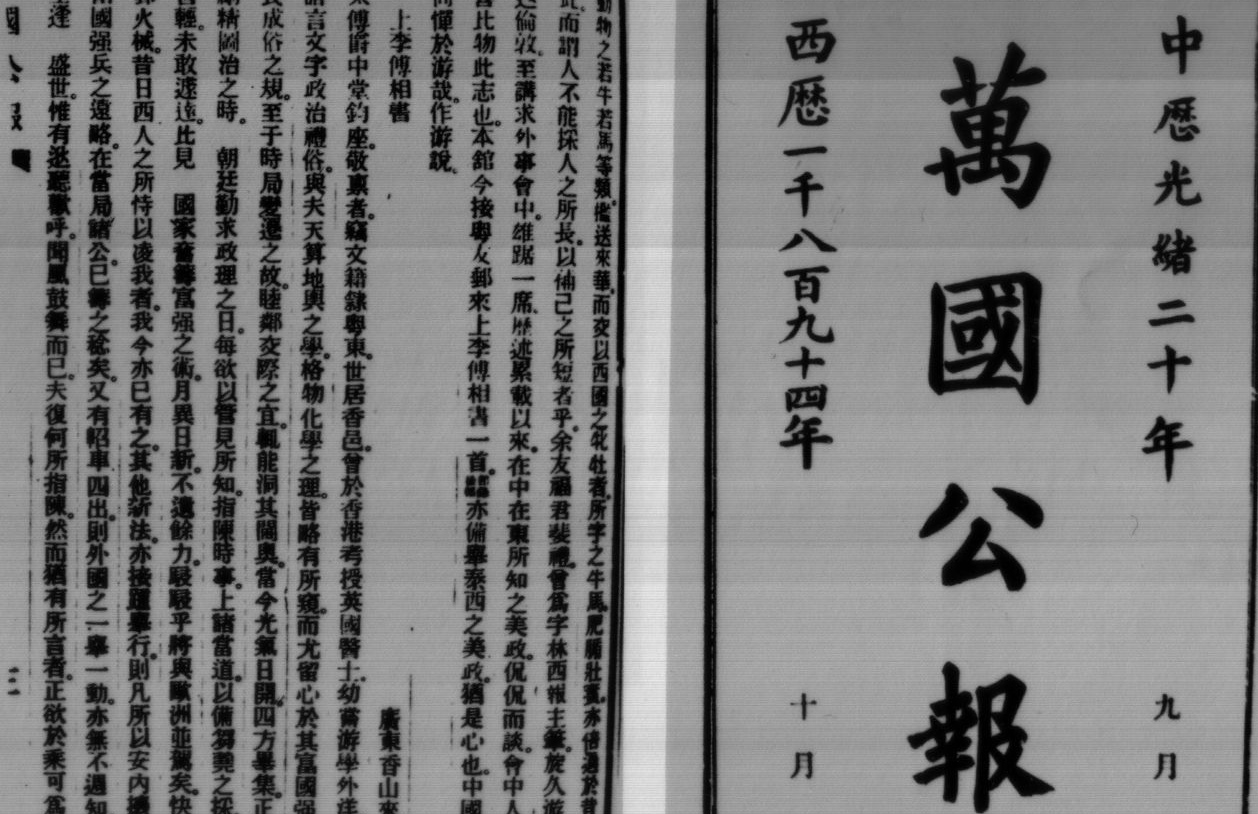 中厯光緒二十年 九月
萬國公報
西厯一千八百九十四年 十月
動物之若牛若馬等類。檻送來華。而交以西國之牝牡者。所字之牛馬。肥腯壯實。亦倍過於昔
此。而謂人不能採人之所長。以補己之所短者乎。余友福君斐禮。曾爲字林西報主筆。旋久游
倫敦。至講求外事會中。雄踞一席。歷述累載以來。在中在東所知之美政。侃侃而談。會中人
比物此志也。本館今接粵友郵來上李傅相書一首。亦備舉泰西之美政。猶是心也。中國
憚於游哉。作游說。
上李傅相書
廣東香山來
傅爵中堂鈞座。敬禀者。竊文籍隸粵東。世居香邑。曾於香港考授英國醫士。幼嘗游學外洋
語言文字政治禮俗。與夫天算地輿之學。格物化學之理。皆略有所窺。而尤留心於其富國强
成俗之規。至于時局變遷之故。睦鄰交際之宜。輒能洞其閫奧。當今光氣日開。四方畢集。正
精圖治之時。 朝廷勤求政理之日。每欲以管見所知。指陳時事。上諸當道。以備芻蕘之採。
輕。未敢遽達。比見 國家奮籌富强之術。月異日新。不遺餘力。駸駸乎將與歐洲並駕矣。快
火械。昔日西人之所恃以凌我者。我今亦已有之。其他新法。亦接踵舉行。則凡所以安內攘
國强兵之遠略。在當局諸公。已籌之稔矣。又有軺車四出。則外國之一舉一動。亦無不週知
逢 盛世。惟有逖聽歡呼。聞風鼓舞而已。夫復何所指陳。然而猶有所言者。正欲於乘可爲
國公報